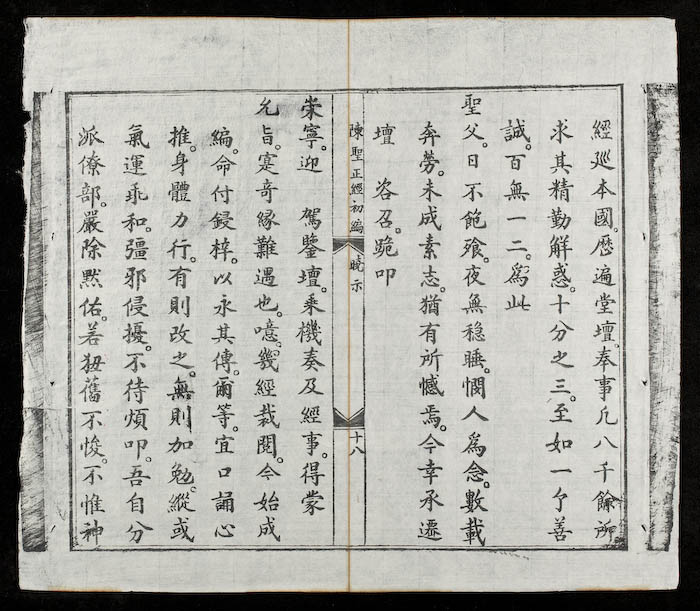 經廵本國。歷遍堂壇。奉事凢八千餘所
求其精勤解惑。十分之三。至如一个善
誠。百無一二。爲此
聖父。日不飽飱。夜無稳睡。憫人爲念。數載
奔勞。未成素志。猶有所憾焉。今幸承遷
壇　咨召。跪叩
陳聖正經初編　曉示　十八
崇寧。迎　駕鑒壇。乘機奏及經事。得蒙
允旨。寔奇緣難遇也。噫。幾經裁閱。今始成
編。命付鋟梓。以永其傳。爾等。宜口誦心
推。身體力行。有則改之。無則加勉。縱或
氣運乖和。彊邪侵擾。不待煩叩。吾自分
派僚部。嚴除黙佑。若狃舊不悛。不惟神